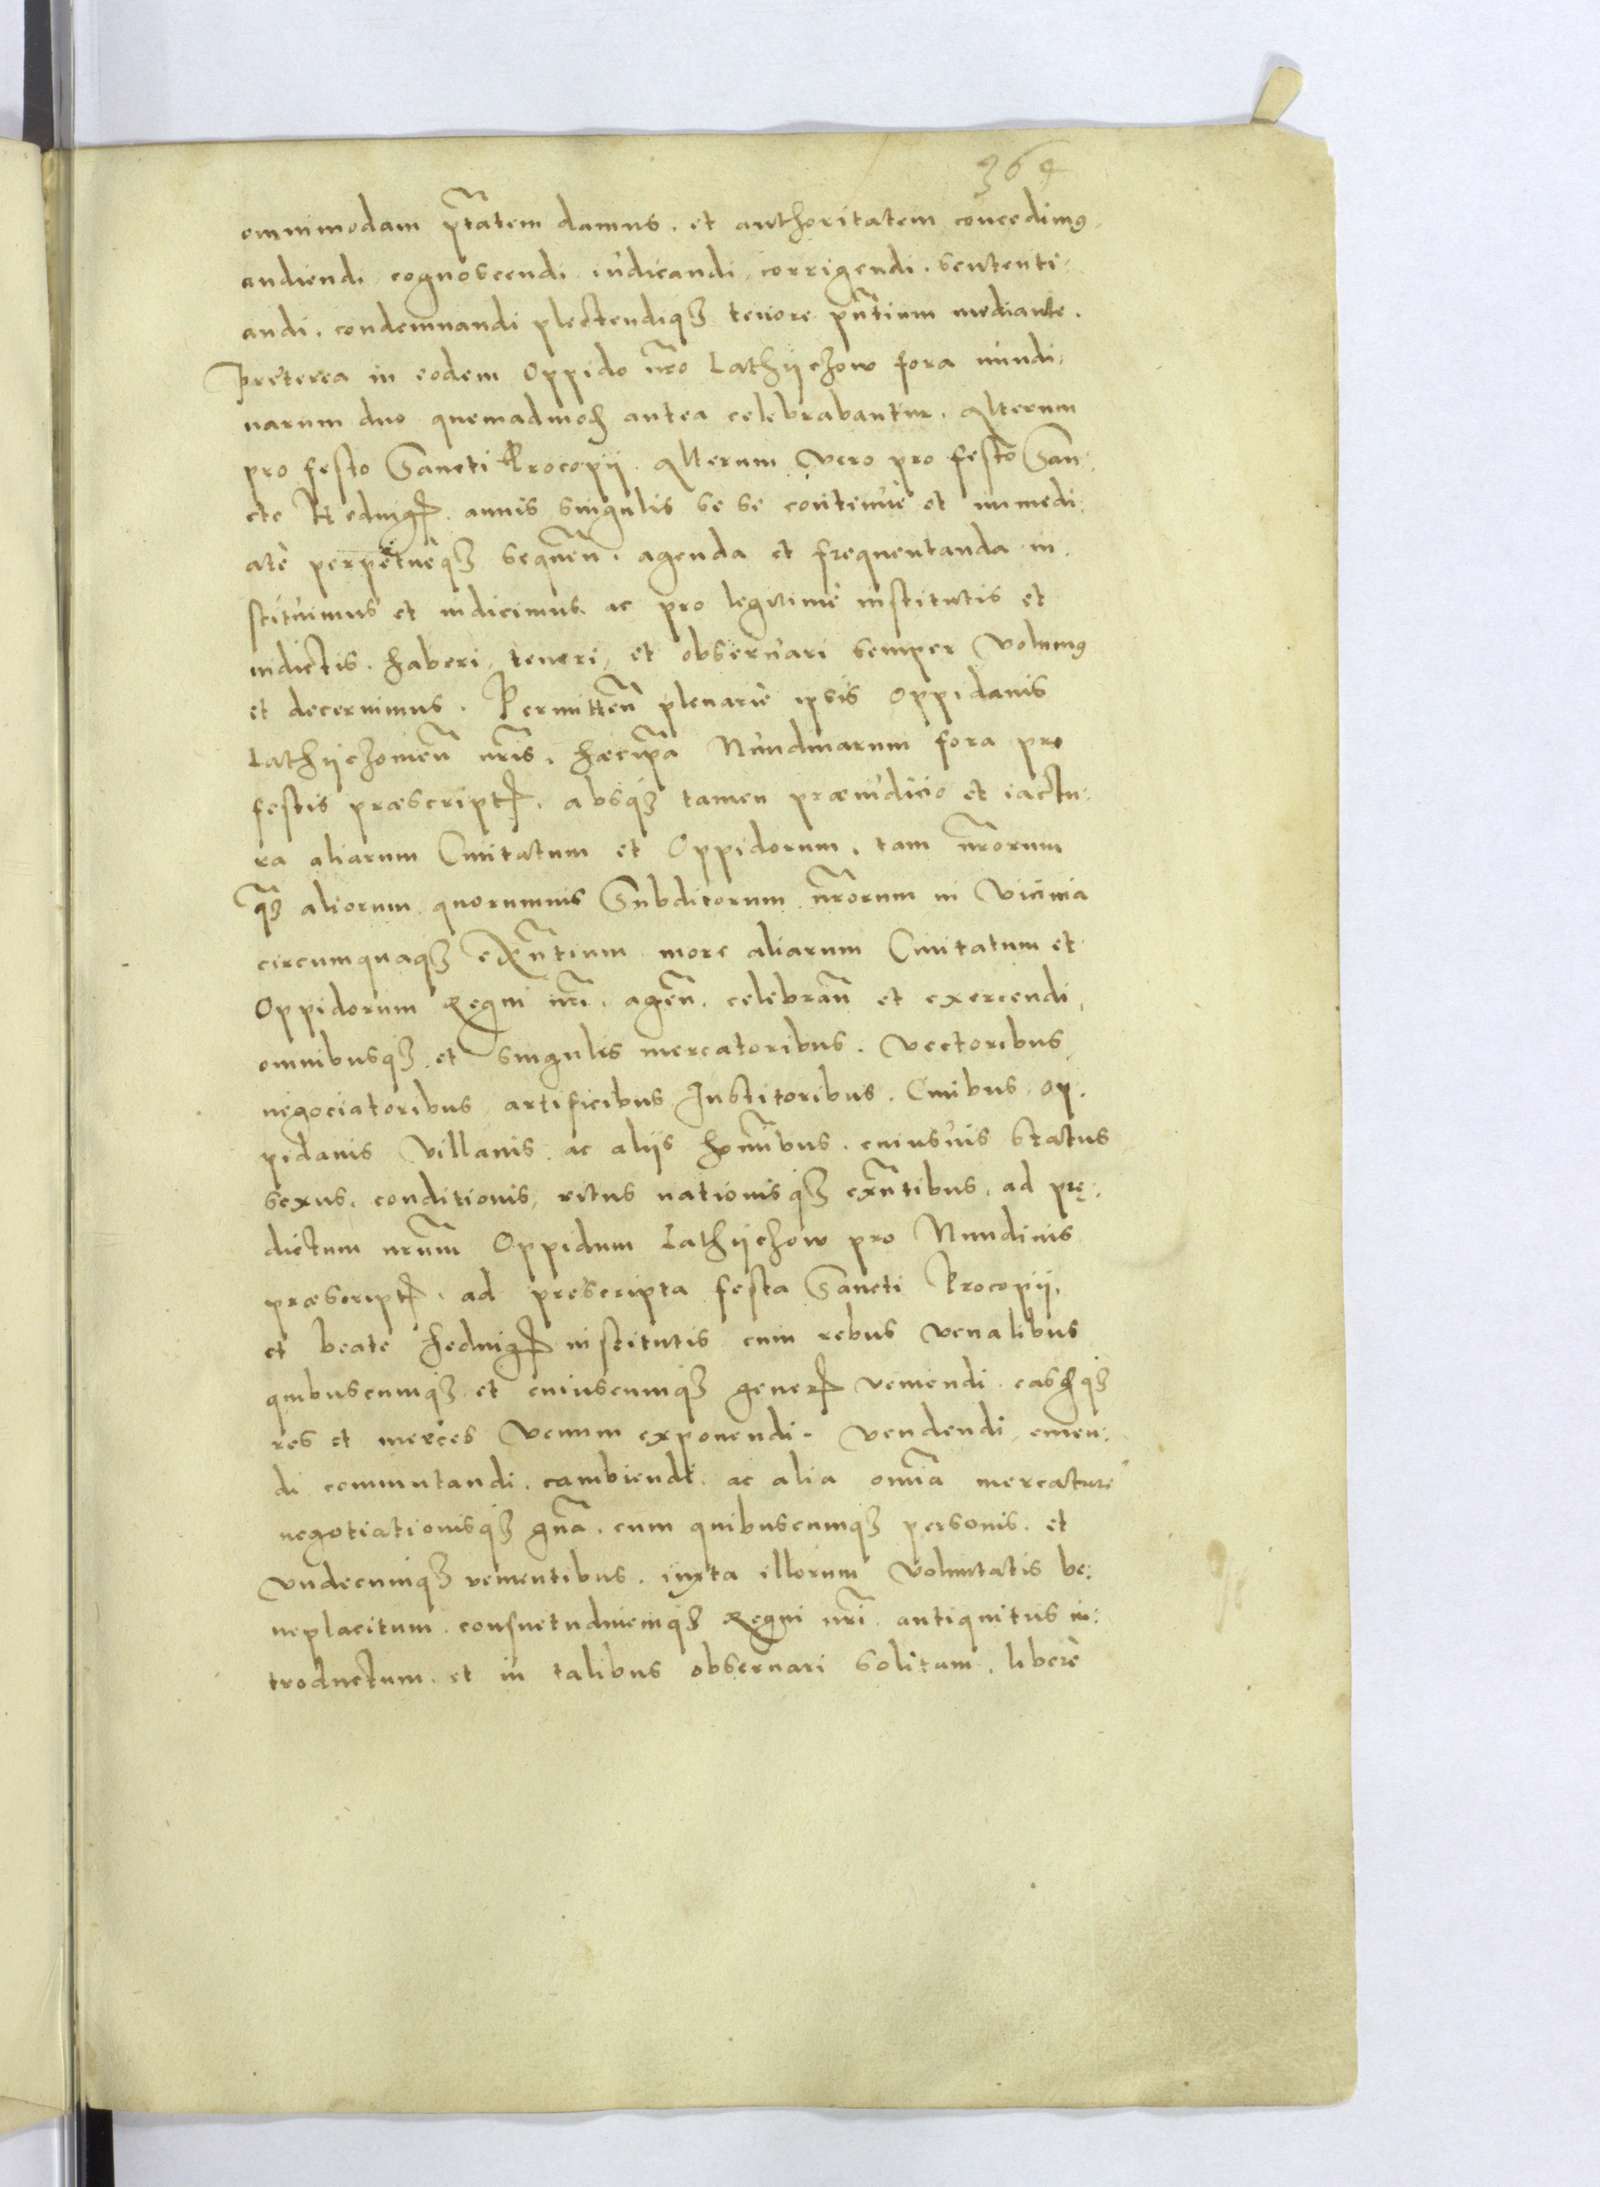 364
omnimodam ptãtem damus. et authoritatem concedimꝰ
audiendi cognoscendi iudicandi corrigendi. sententi-
andi. condemnandi plectendiqꝫ tenore pñtium mediante.
Preterea in eodem Oppido nr̃o Lathÿchow fora nundi-
narum duo quemadmoꝫ antea celebrabantur. Alterum
pro festo Sancti Procopij. Alterum vero pro festo San-
cte Heduigꝭ. annis singulis se se contenue et immedi-
atè perpetueqꝫ sequeñ. agenda et frequentanda in-
stituimus et indicimus. ac pro legitime institutis et
indictis. haberi, teneri, et obseruari semper volumꝰ
et decernimus. Permitteñ plenarie ipsis Oppidanis
Lathÿchouieñ nr̃is. hæc ip̃a Nundinarum fora pro
festis præscriptꝭ. absqꝫ tamen præiudicio et iactu-
ra aliarum Ciuitatum et Oppidorum. tam nr̃orum
qꝫ aliorum quorumuis Subditorum nr̃orum in vicinia
circumquaqꝫ exñtium more aliarum Ciuitatum et
Oppidorum Regni nr̃i. ageñ. celebrañ et exercendi,
omnibusqꝫ et singulis mercatoribus. vectoribus
negociatoribus artificibus Institoribus. Ciuibus Op-
pidanis Villanis ac aliis hoĩnibus. cuiusuis status
sexus. conditionis, ritus nationisqꝫ exñtibus. ad prę-
dictum nr̃um Oppidum Lathÿchow pro Nundinis
præscriptꝭ. ad prescripta festa Sancti Procopij,
et beate Heduigꝭ institutis cum rebus venalibus
quibuscumqꝫ et cuiuscumqꝫ generꝭ veniendi easqꝫ
res et merces venum exponendi. vendendi emen-
di commutandi. cambiendi ac alia oñia mercature
negotiationisqꝫ gñra. cum quibuscumqꝫ personis. et
vndecumqꝫ venientibus. iuxta illorum voluntatis be-
neplacitum. consuetudinemqꝫ Regni nr̃i antiquitus in-
troductum. et in talibus obseruari solitam. liberè